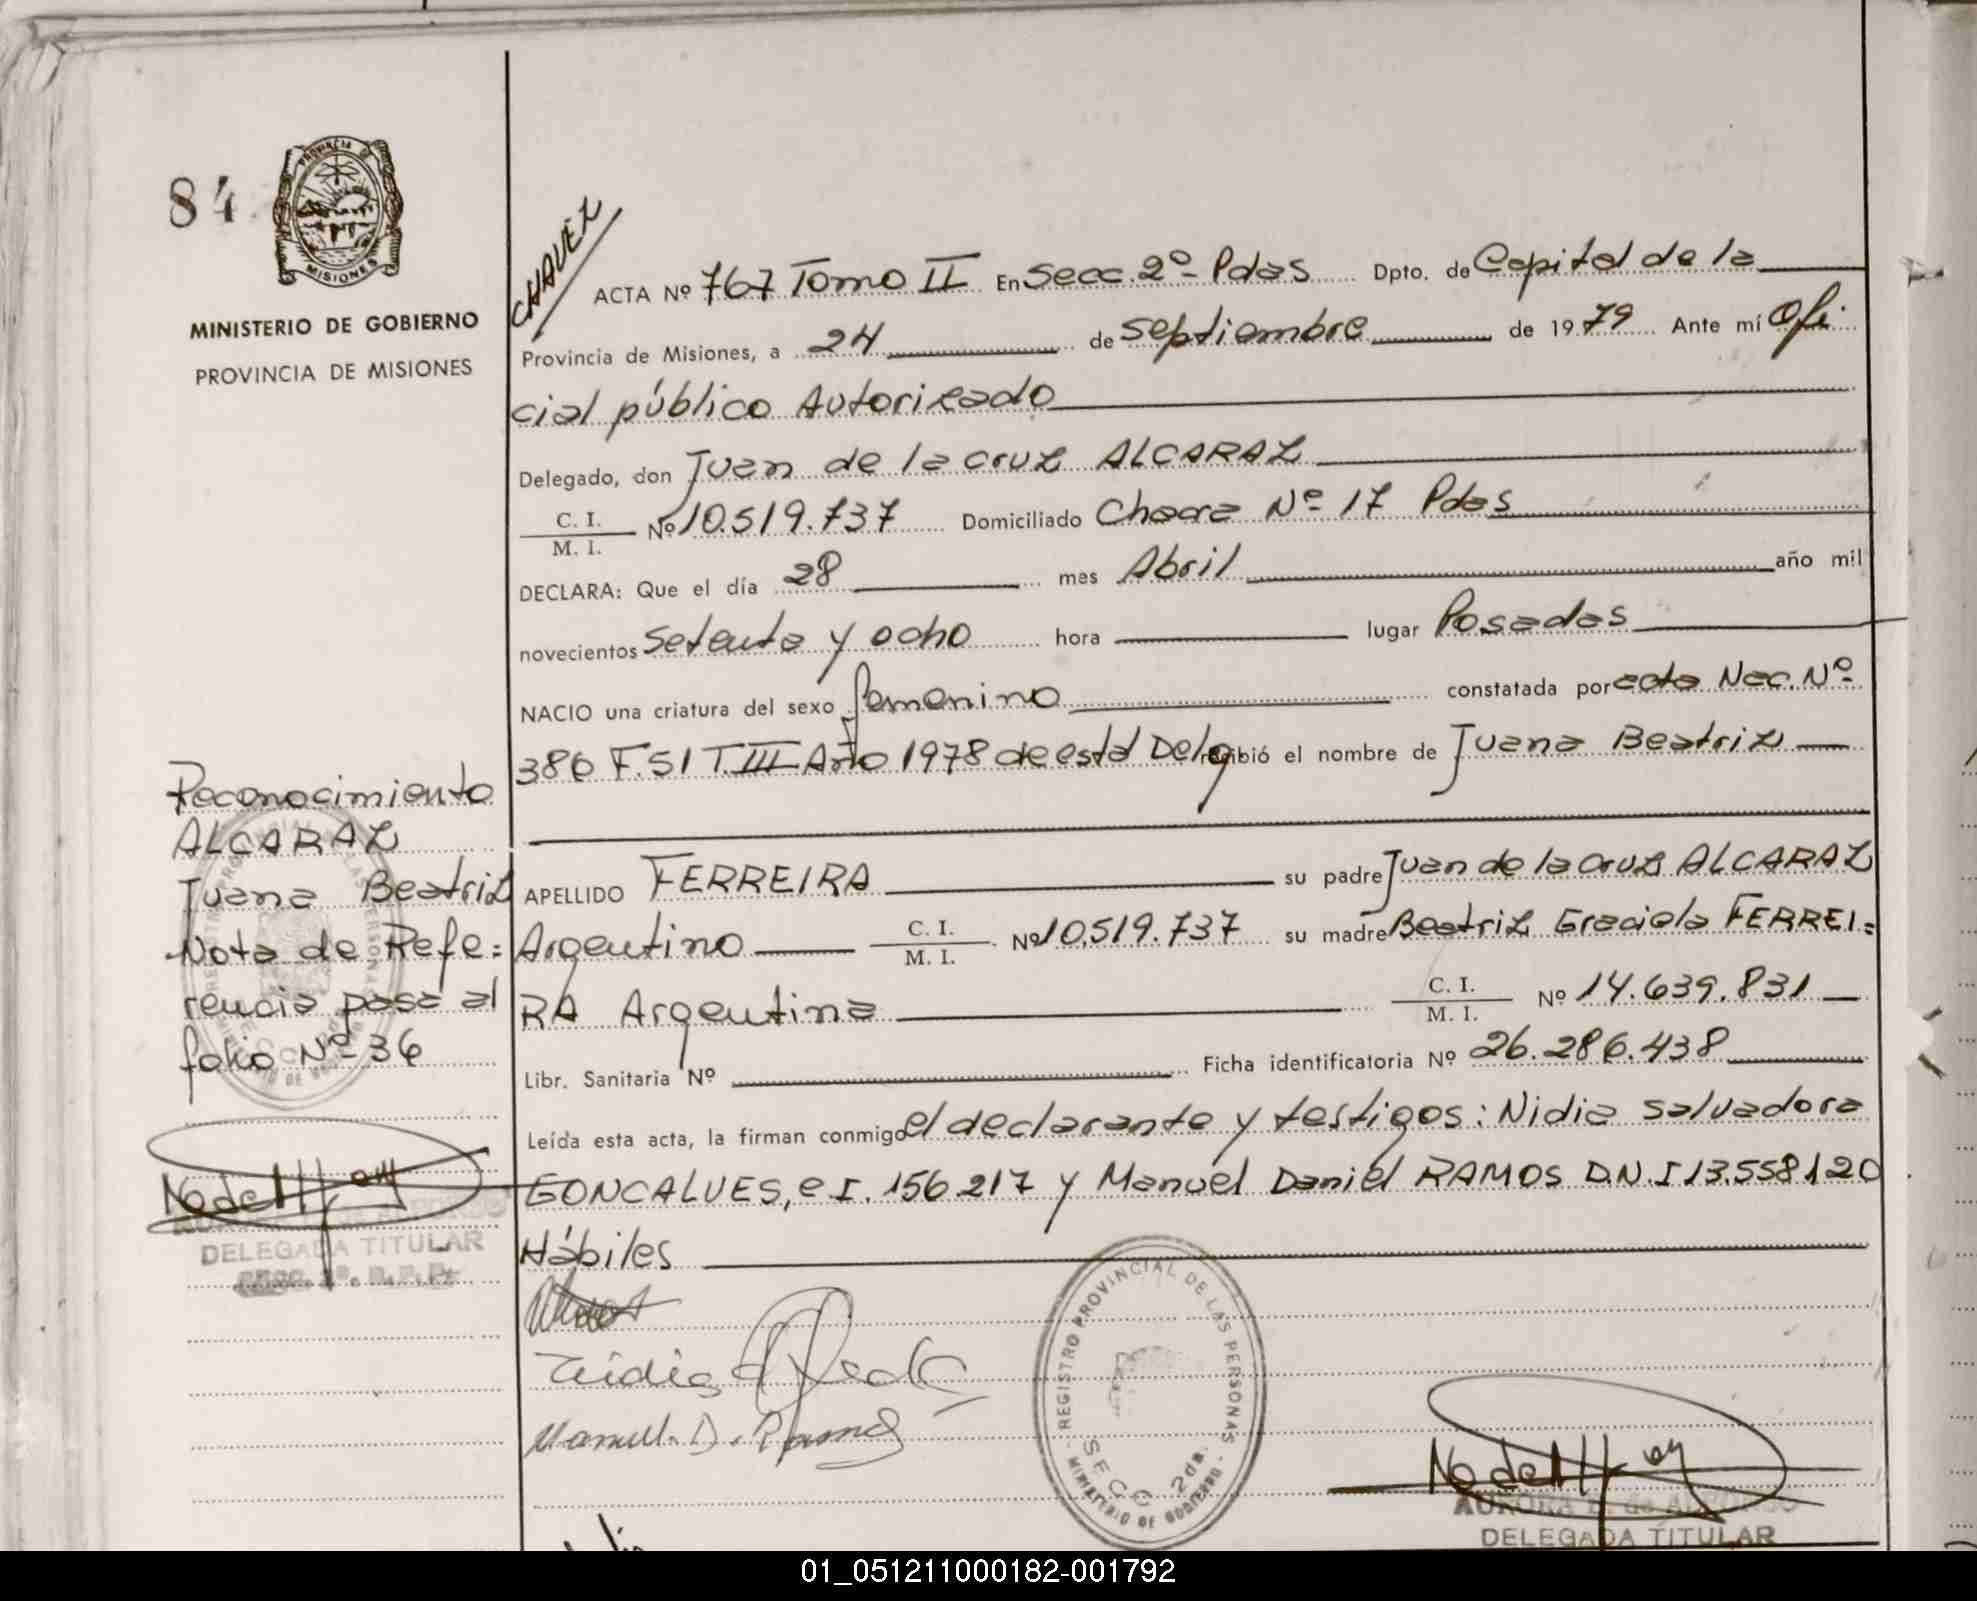 84
PROVINCIA DE
MISIONES
MINISTERIO DE GOBIERNO
PROVINCIA DE MISIONES
CHAVEZ
ACTA Nº 767 Tomo II En Secc. 2º- Pdas Dpto. de Capital de la
Provincia de Misiones, a 24 de Septiembre de 1979 Ante mí Ofi
cial público Autorizado
Delegado, don Juan de la Cruz ALCARAZ
C. I.
M. I. Nº 10.519.737 Domiciliado Chacra Nº 17 Pdas
DECLARA: Que el día 28 mes Abril año mil
novecientos setenta y ocho hora lugar Posadas
NACIO una criatura del sexo femenino constatada por acta Nac. Nº
386 F. 51 T. III Año 1978 de esta Deleg recibió el nombre de Juana Beatriz
APELLIDO FERREIRA su padre Juan de la Cruz ALCARAZ
Argentino C. I.
M. I. Nº 10.519.737 su madre Beatriz Graciela FERREI=
RA Argentina C. I.
M. I. Nº 14.639.831
Libr. Sanitaria Nº Ficha identificatoria Nº 26.286.438
Leída esta acta, la firman conmigo el declarante y testigos: Nidia Salvadora
GONCALVES, C I. 156.217 y Manuel Daniel RAMOS D.N.I 13.558.120
Hábiles
Manuel. D. Ramos
REGISTRO PROVINCIAL DE LAS PERSONAS
MINISTERIO DE GOBIERNO
SECC 2da.
AURORA de
DELEGADA TITULAR
Reconocimiento
ALCARAZ
Juana Beatriz
Nota de Refe=
rencia pasa al
folio Nº 36
DELEGADA TITULAR
SECC. 2ª. R. P. P.
01_051211000182-001792